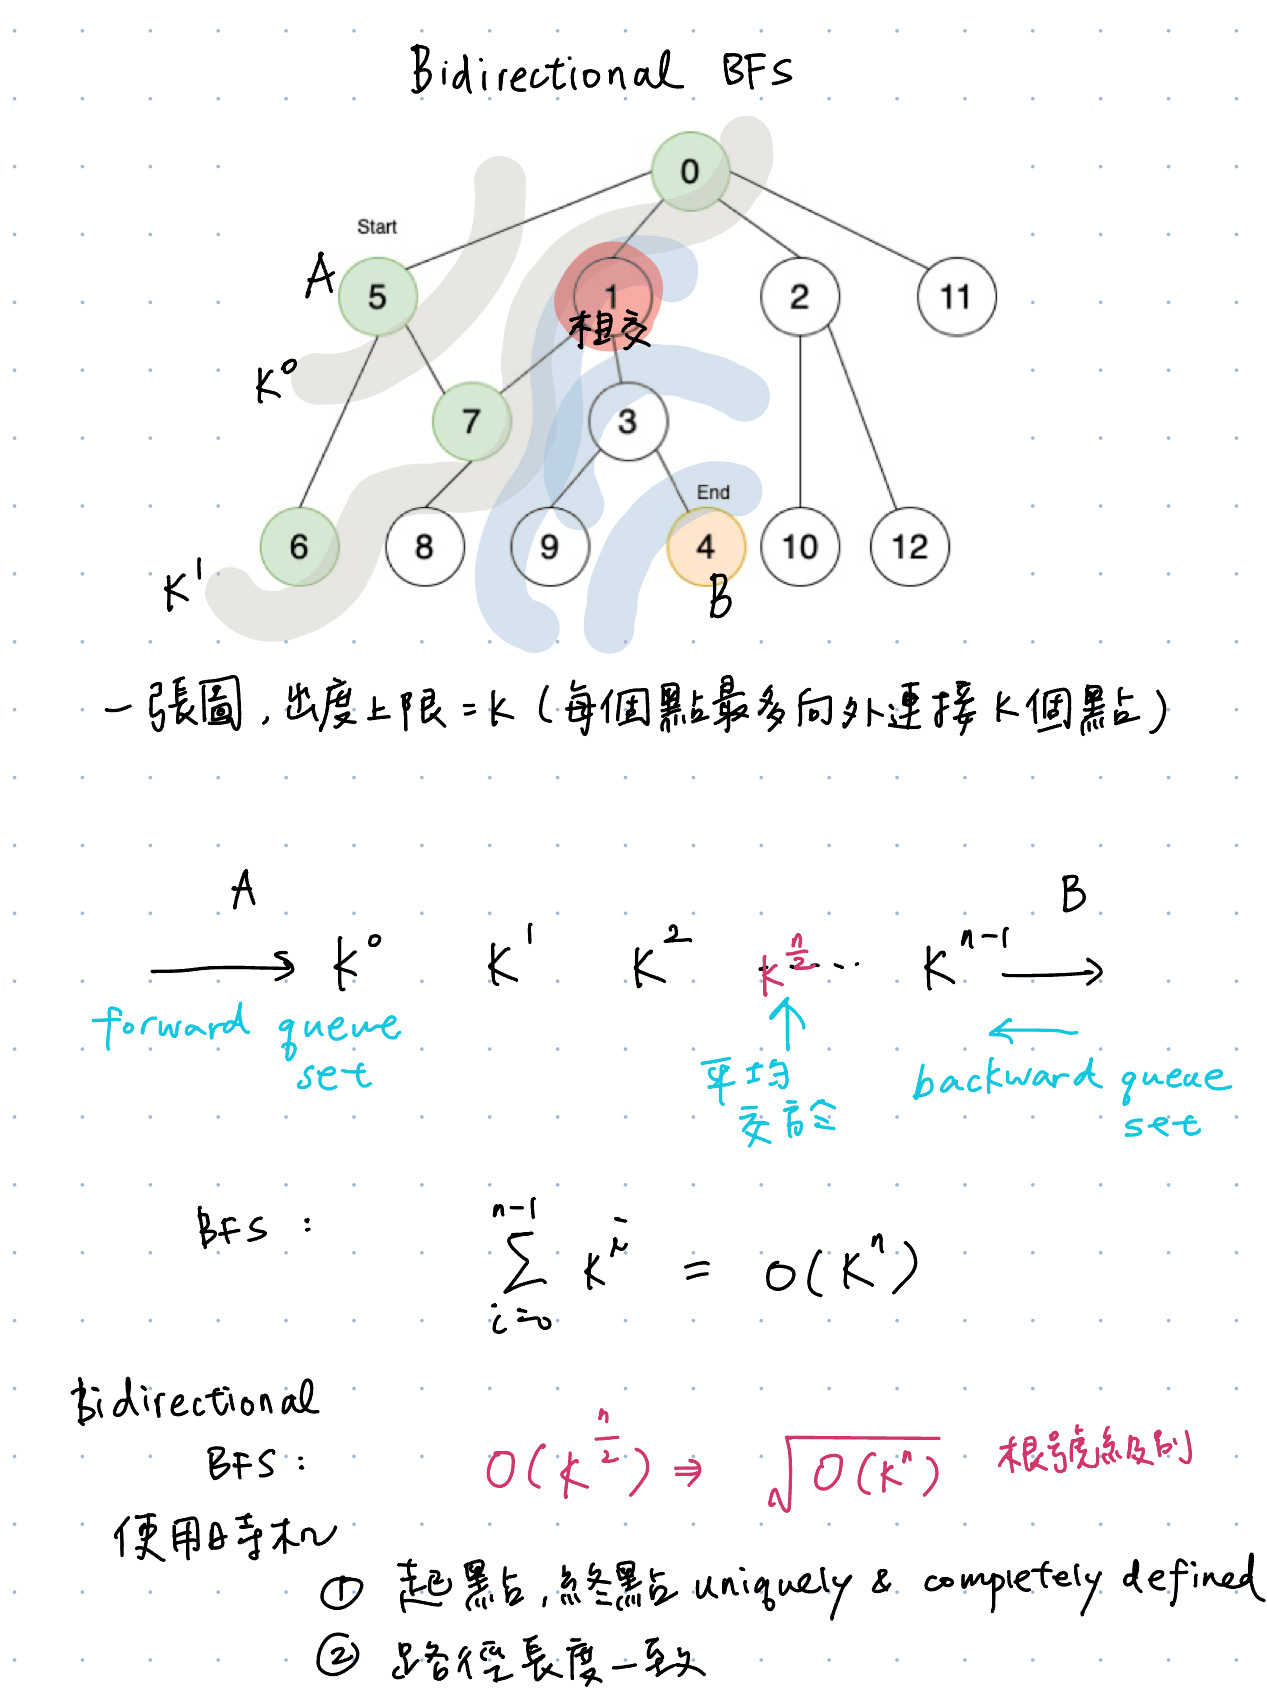 Bidirectional BFS
0
Start
A
5
1
2
11
相交
K⁰
7
3
End
6
8
9
4
10
12
K¹
B
一張圖,出度上限=K(每個點最多向外連接K個點)
A
B
K⁰ K¹ K² K^(n/2) ... K^(n-1)
forward queue
set
平均
交於
backward queue
set
BFS : ∑_{i=0}^{n-1} K^i = O(K^n)
Bidirectional
BFS : O(K^(n/2)) ⇒ √O(K^n) 根號級別
使用時机
① 起點,終點 uniquely & completely defined
② 路徑長度一致